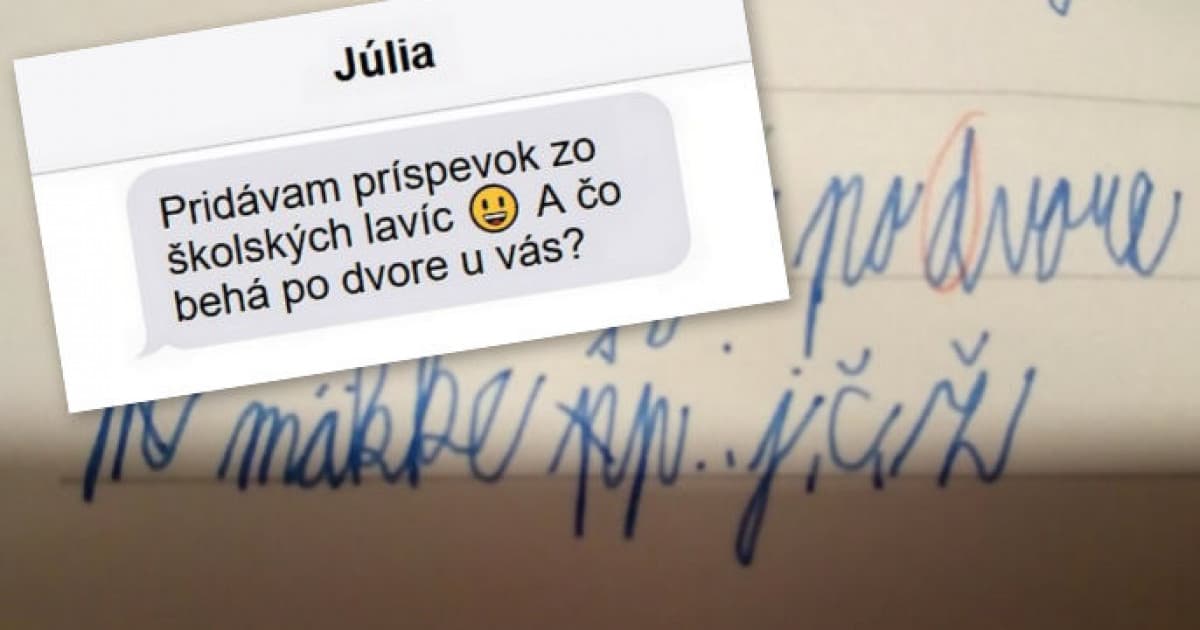 Júlia
Pridávam príspevok zo
školských lavíc 😃 A čo
behá po dvore u vás?
po dvore
mäkké
j, č, ž